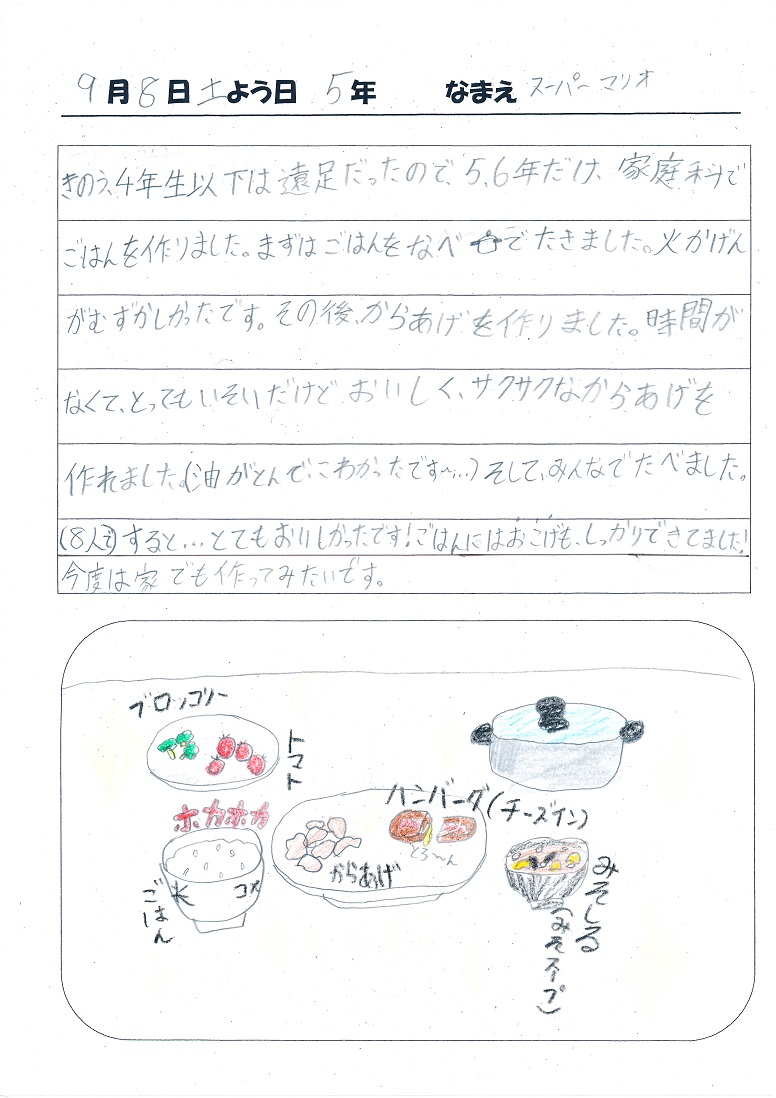 9月8日土よう日 5年 なまえ スーパーマリオ
きのう、4年生以下は遠足だったので、5、6年だけ、家庭科で
ごはんを作りました。まずはごはんをなべでたきました。火かげん
がむずかしかったです。その後、からあげを作りました。時間が
なくて、とってもいそいだけど、おいしく、サクサクなからあげを
作れました。(油がとんで、こわかったです〜…)そして、みんなでたべました。
(8人で)すると…とてもおいしかったです!ごはんにはおこげも、しっかりできてました!
今度は家でも作ってみたいです。
ブロッコリー
トマト
ハンバーグ(チーズイン)
ホカホカ
とろ〜ん
からあげ
米
コメ
ごはん
みそしる
(みそスープ)